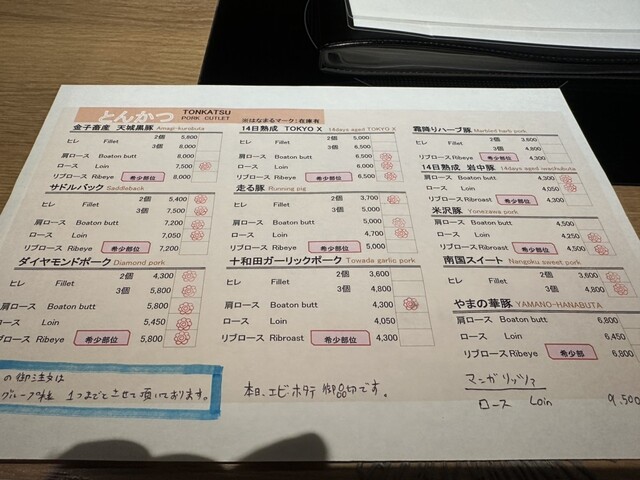 とんかつ TONKATSU
PORK CUTLET ※はなまるマーク：在庫有
金子畜産 天城黒豚 Amagi-kurobuta
ヒレ Fillet 2個 5,800
3個 8,000
肩ロース Boaton butt 8,000
ロース Loin 7,500
リブロース Ribeye 希少部位 8,000
サドルバック Saddleback
ヒレ Fillet 2個 5,400
3個 7,500
肩ロース Boaton butt 7,200
ロース Loin 7,050
リブロース Ribeye 希少部位 7,200
ダイヤモンドポーク Diamond pork
ヒレ Fillet 2個 4,300
3個 5,800
肩ロース Boaton butt 5,800
ロース Loin 5,450
リブロース Ribeye 希少部位 5,800
14日熟成 TOKYO X 14days aged TOKYO X
ヒレ Fillet 2個 5,000
3個 6,500
肩ロース Boaton butt 6,500
ロース Loin 6,000
リブロース Ribeye 希少部位 6,500
走る豚 Running pig
ヒレ Fillet 2個 3,700
3個 5,000
肩ロース Boaton butt 5,000
ロース Loin 4,700
リブロース Ribeye 希少部位 5,000
十和田ガーリックポーク Towada garlic pork
ヒレ Fillet 2個 3,600
3個 4,800
肩ロース Boaton butt 4,300
ロース Loin 4,050
リブロース Ribroast 希少部位 4,300
霜降りハーブ豚 Marbled harb pork
ヒレ Fillet 2個 3,600
3個 4,800
リブロース Ribeye 希少部位 4,300
14日熟成 岩中豚 14days aged iwachubuta
肩ロース Boaton butt 4,300
ロース Loin 4,050
リブロース Ribroast 希少部位 4,300
米沢豚 Yonezawa pork
肩ロース Boaton butt 4,500
ロース Loin 4,250
リブロース Ribroast 希少部位 4,500
南国スイート Nangoku sweet pork
ヒレ Fillet 2個 3,600
3個 4,800
やまの華豚 YAMANO-HANABUTA
肩ロース Boaton butt 6,800
ロース Loin 6,450
リブロース Ribeye 希少部位 6,800
の御注文は
グループ様 1つまでとさせて頂いております。
本日、エビ・ホタテ 御品切です。
マンガリッツァ
ロース Loin 9,500